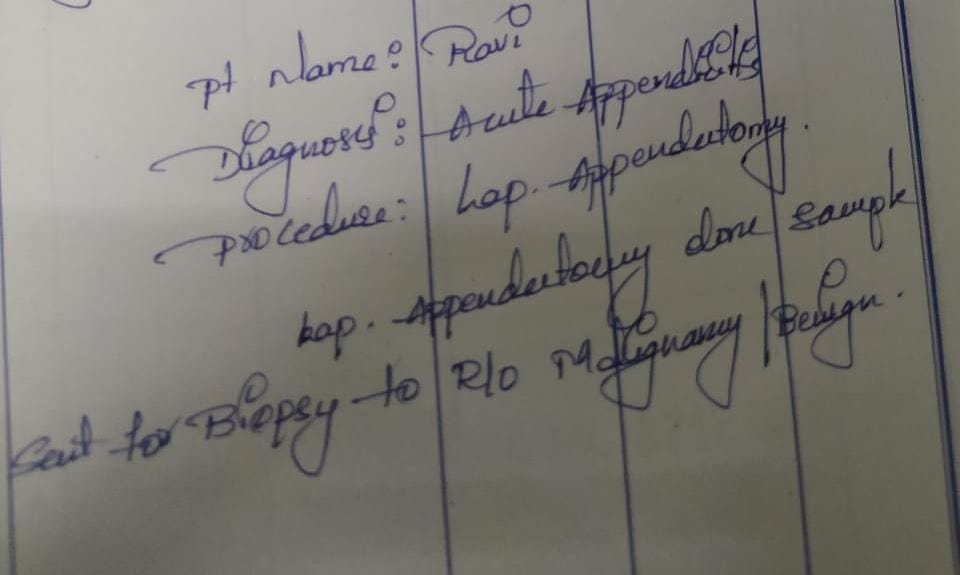 pt Name: Ravi
Diagnosis: Acute Appendicitis
procedure: Lap. Appendectomy.
Lap. Appendectomy done sample
Sent for Biopsy to R/o Malignancy / Benign.